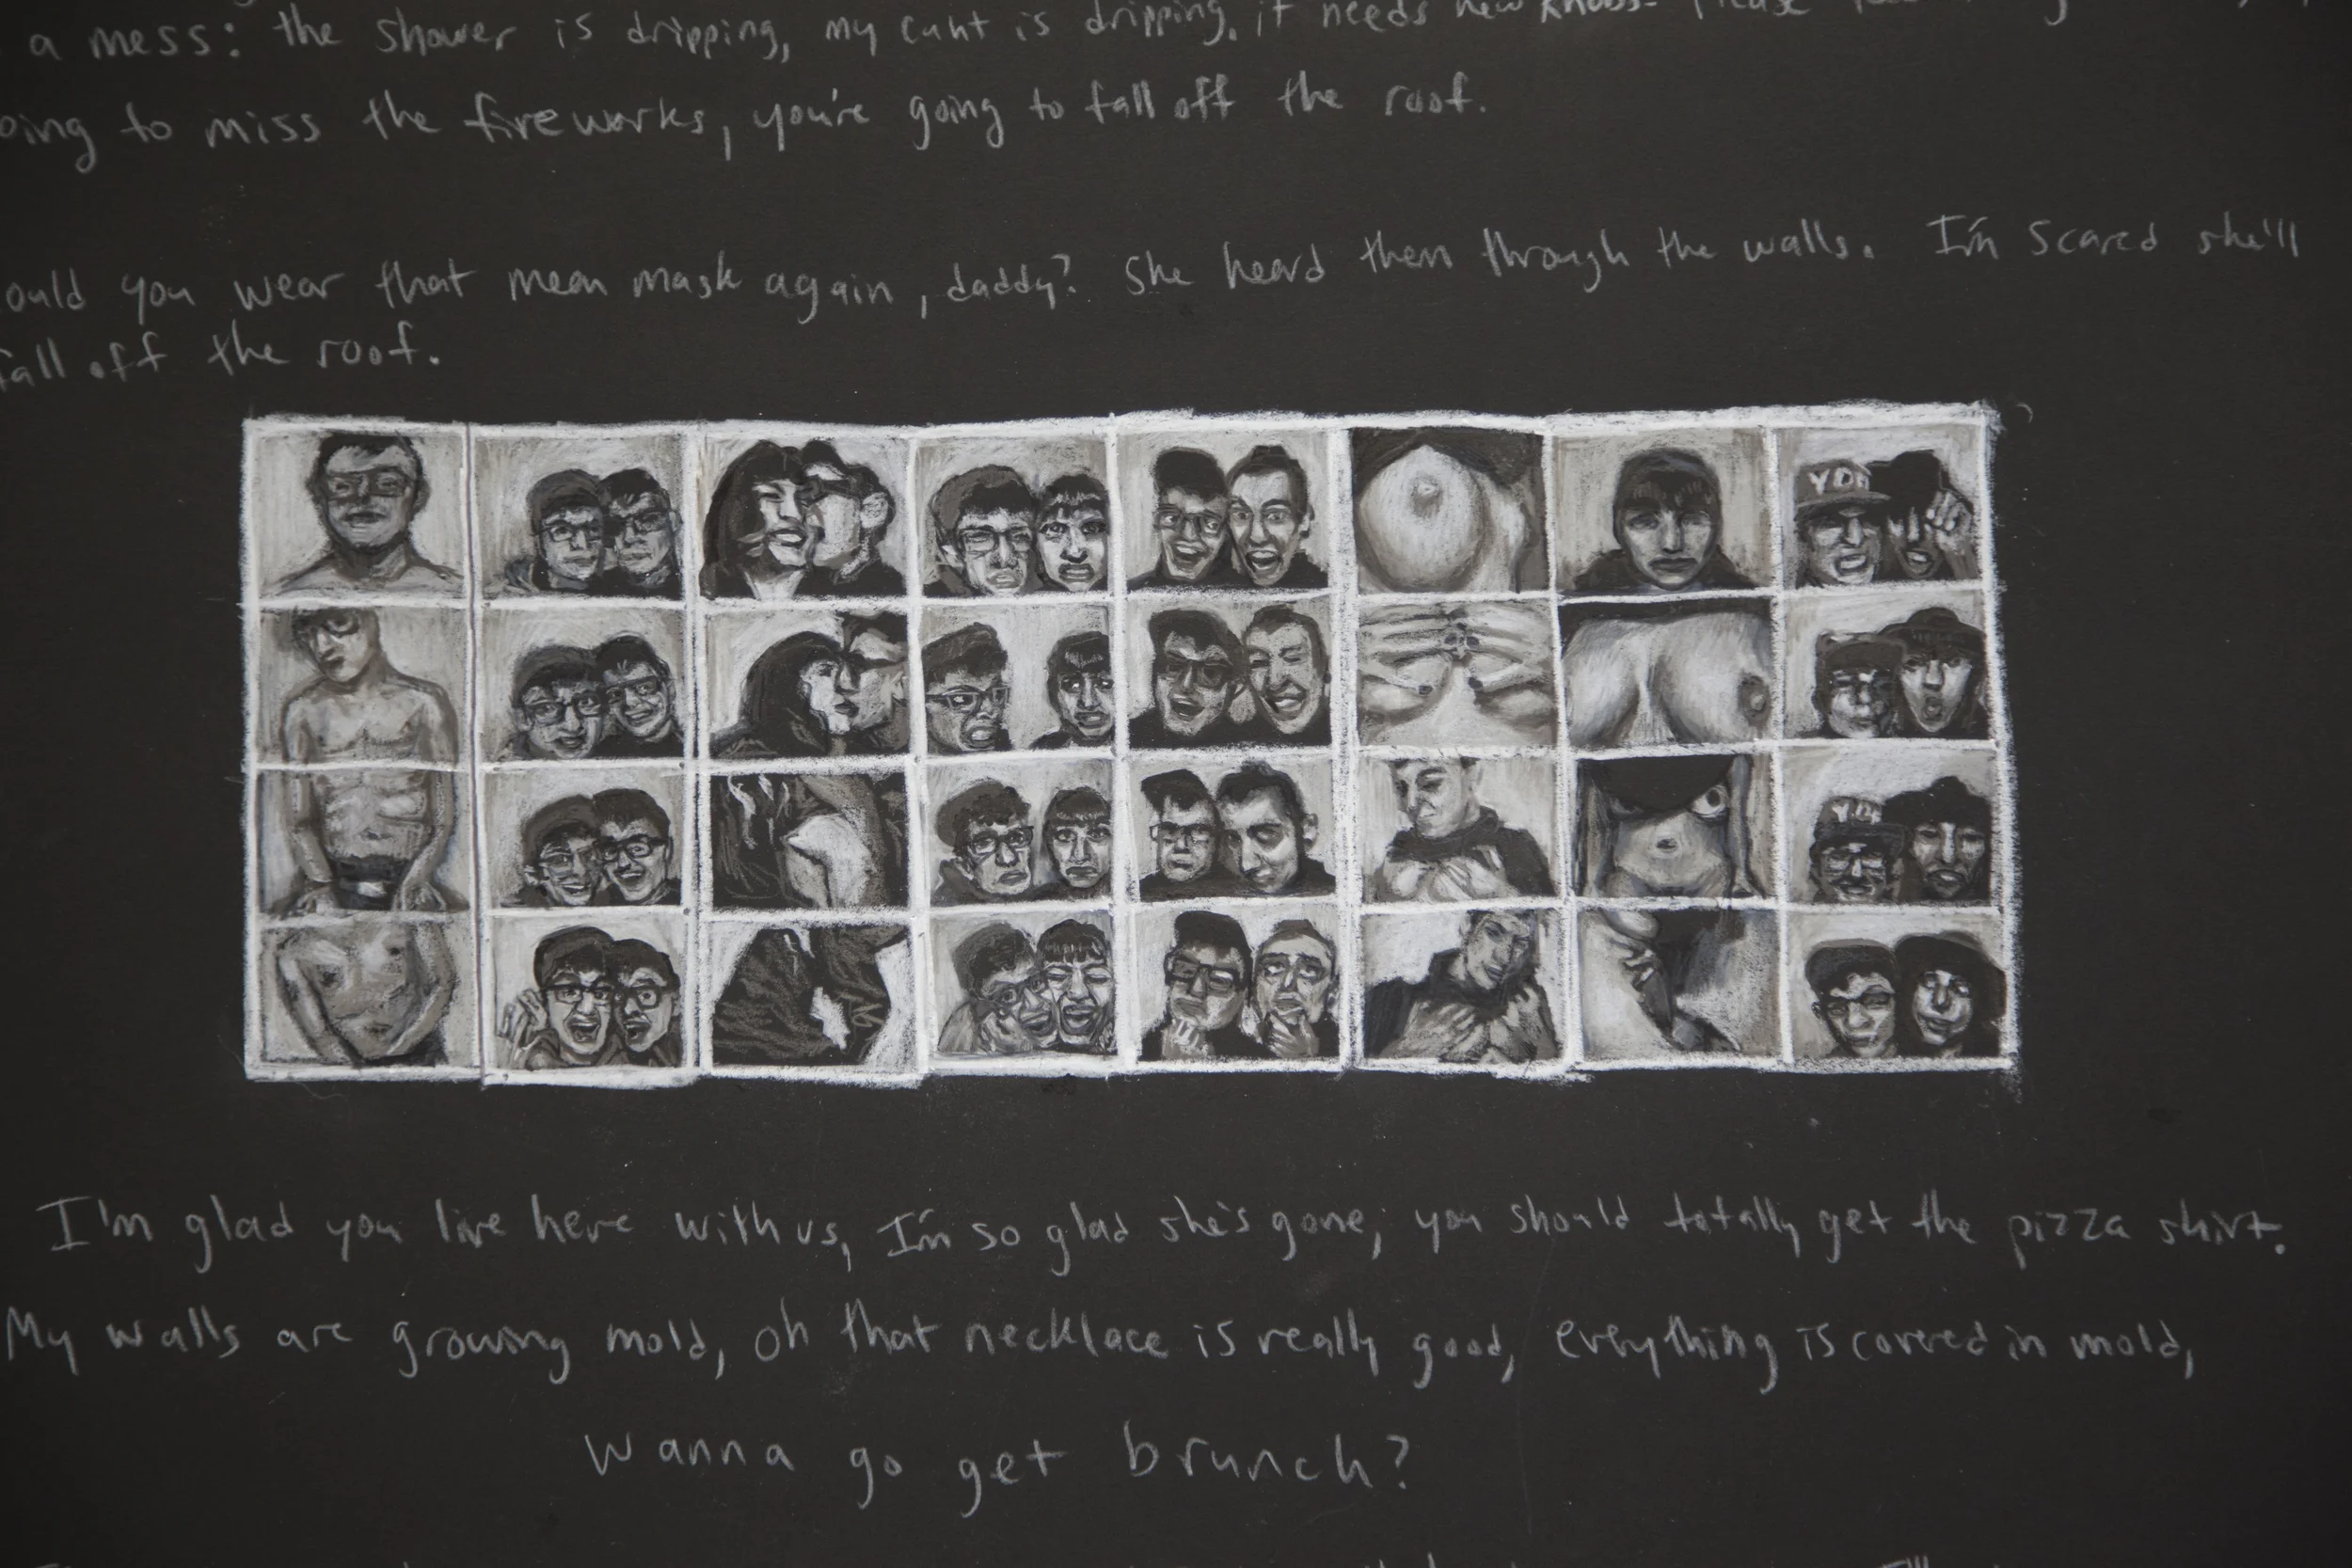 a mess: the shower is dripping, my cunt is dripping, it needs new knobs. Please
going to miss the fireworks, you're going to fall off the roof.
ould you wear that mean mask again, daddy? She heard them through the walls. I'm scared she'll
fall off the roof.
YDN
YDN
I'm glad you live here with us, I'm so glad she's gone, you should totally get the pizza shirt.
My walls are growing mold, oh that necklace is really good, everything is covered in mold,
Wanna go get brunch?